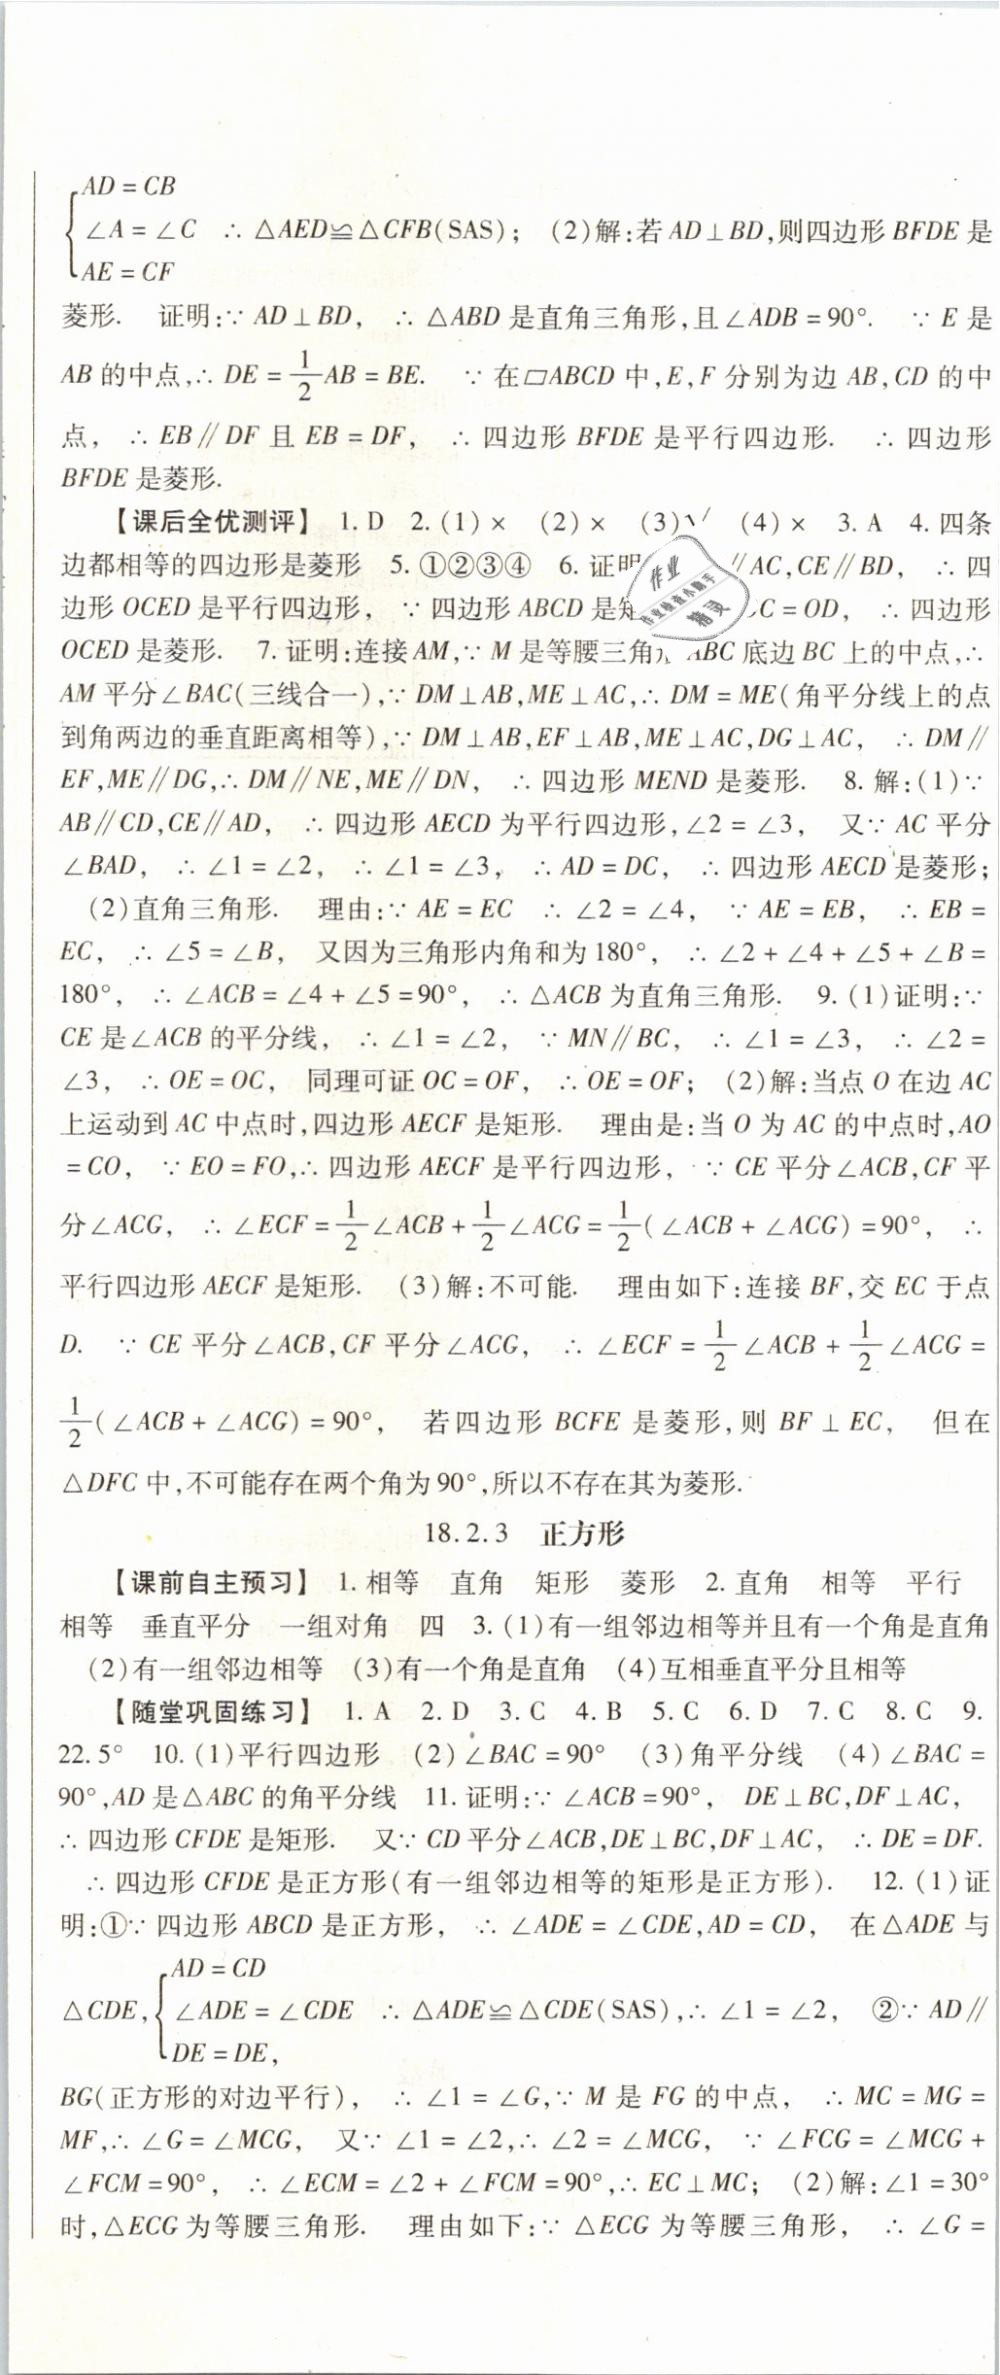 {AD=CB
∠A=∠C ∴△AED≌△CFB(SAS); (2)解:若AD⊥BD,则四边形BFDE是
AE=CF
菱形. 证明:∵AD⊥BD, ∴△ABD是直角三角形,且∠ADB=90°. ∵E是
AB的中点,∴DE=1/2AB=BE. ∵在▱ABCD中,E,F分别为边AB,CD的中
点, ∴EB∥DF且EB=DF, ∴四边形BFDE是平行四边形. ∴四边形
BFDE是菱形.
【课后全优测评】 1.D 2.(1)× (2)× (3)√ (4)× 3.A 4.四条
边都相等的四边形是菱形 5.①②③④ 6.证明 ∥AC,CE∥BD, ∴四
边形OCED是平行四边形, ∵四边形ABCD是 C=OD, ∴四边形
OCED是菱形. 7.证明:连接AM,∵M是等腰三角 ABC底边BC上的中点,∴
AM平分∠BAC(三线合一),∵DM⊥AB,ME⊥AC,∴DM=ME(角平分线上的点
到角两边的垂直距离相等),∵DM⊥AB,EF⊥AB,ME⊥AC,DG⊥AC, ∴DM∥
EF,ME∥DG,∴DM∥NE,ME∥DN, ∴四边形MEND是菱形. 8.解:(1)∵
AB∥CD,CE∥AD, ∴四边形AECD为平行四边形,∠2=∠3, 又∵AC平分
∠BAD, ∴∠1=∠2, ∴∠1=∠3, ∴AD=DC, ∴四边形AECD是菱形;
(2)直角三角形. 理由:∵AE=EC ∴∠2=∠4, ∵AE=EB, ∴EB=
EC, ∴∠5=∠B, 又因为三角形内角和为180°, ∴∠2+∠4+∠5+∠B=
180°, ∴∠ACB=∠4+∠5=90°, ∴△ACB为直角三角形. 9.(1)证明:∵
CE是∠ACB的平分线, ∴∠1=∠2, ∵MN∥BC, ∴∠1=∠3, ∴∠2=
∠3, ∴OE=OC, 同理可证OC=OF, ∴OE=OF; (2)解:当点O在边AC
上运动到AC中点时,四边形AECF是矩形. 理由是:当O为AC的中点时,AO
=CO, ∵EO=FO,∴四边形AECF是平行四边形, ∵CE平分∠ACB,CF平
分∠ACG, ∴∠ECF=1/2∠ACB+1/2∠ACG=1/2(∠ACB+∠ACG)=90°, ∴
平行四边形AECF是矩形. (3)解:不可能. 理由如下:连接BF,交EC于点
D. ∵CE平分∠ACB,CF平分∠ACG, ∴∠ECF=1/2∠ACB+1/2∠ACG=
1/2(∠ACB+∠ACG)=90°, 若四边形BCFE是菱形,则BF⊥EC, 但在
△DFC中,不可能存在两个角为90°,所以不存在其为菱形.
18.2.3 正方形
【课前自主预习】 1.相等 直角 矩形 菱形 2.直角 相等 平行
相等 垂直平分 一组对角 四 3.(1)有一组邻边相等并且有一个角是直角
(2)有一组邻边相等 (3)有一个角是直角 (4)互相垂直平分且相等
【随堂巩固练习】 1.A 2.D 3.C 4.B 5.C 6.D 7.C 8.C 9.
22.5° 10.(1)平行四边形 (2)∠BAC=90° (3)角平分线 (4)∠BAC=
90°,AD是△ABC的角平分线 11.证明:∵∠ACB=90°, DE⊥BC,DF⊥AC,
∴四边形CFDE是矩形. 又∵CD平分∠ACB,DE⊥BC,DF⊥AC, ∴DE=DF.
∴四边形CFDE是正方形(有一组邻边相等的矩形是正方形). 12.(1)证
明:①∵四边形ABCD是正方形, ∴∠ADE=∠CDE,AD=CD, 在△ADE与
{AD=CD
△CDE, ∠ADE=∠CDE ∴△ADE≌△CDE(SAS),∴∠1=∠2, ②∵AD∥
DE=DE,
BG(正方形的对边平行), ∴∠1=∠G,∵M是FG的中点, ∴MC=MG=
MF,∴∠G=∠MCG, 又∵∠1=∠2,∴∠2=∠MCG, ∵∠FCG=∠MCG+
∠FCM=90°, ∴∠ECM=∠2+∠FCM=90°,∴EC⊥MC; (2)解:∠1=30°
时,△ECG为等腰三角形. 理由如下:∵△ECG为等腰三角形, ∴∠G=
作业
精灵